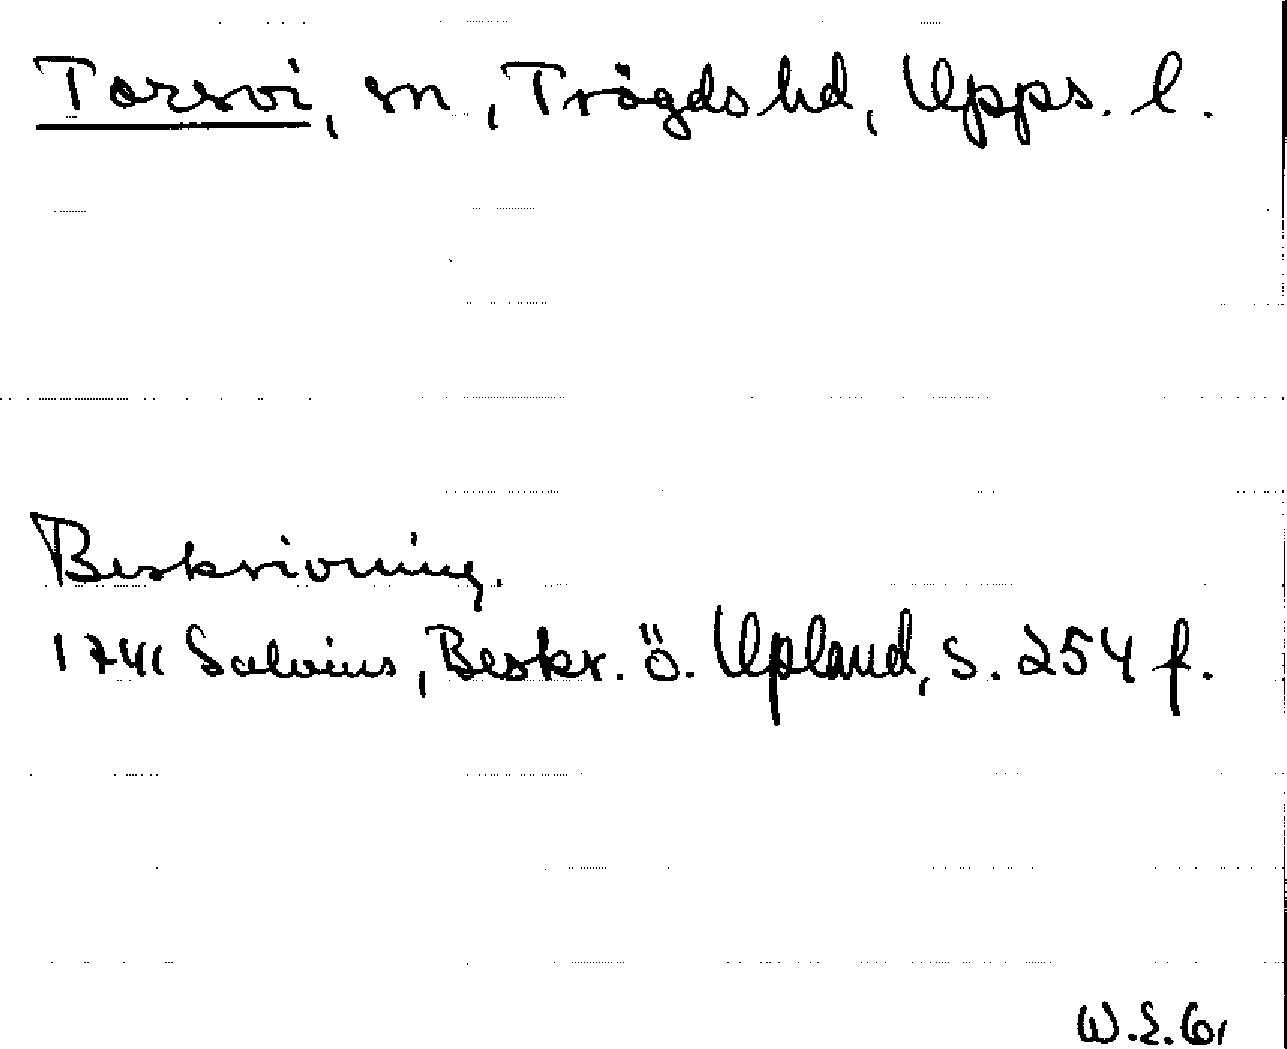 Torsvi, sn, Trögds hd, Upps. l.
Beskrivning.
1741 Salvius, Beskr. ö. Upland, s. 254 f.